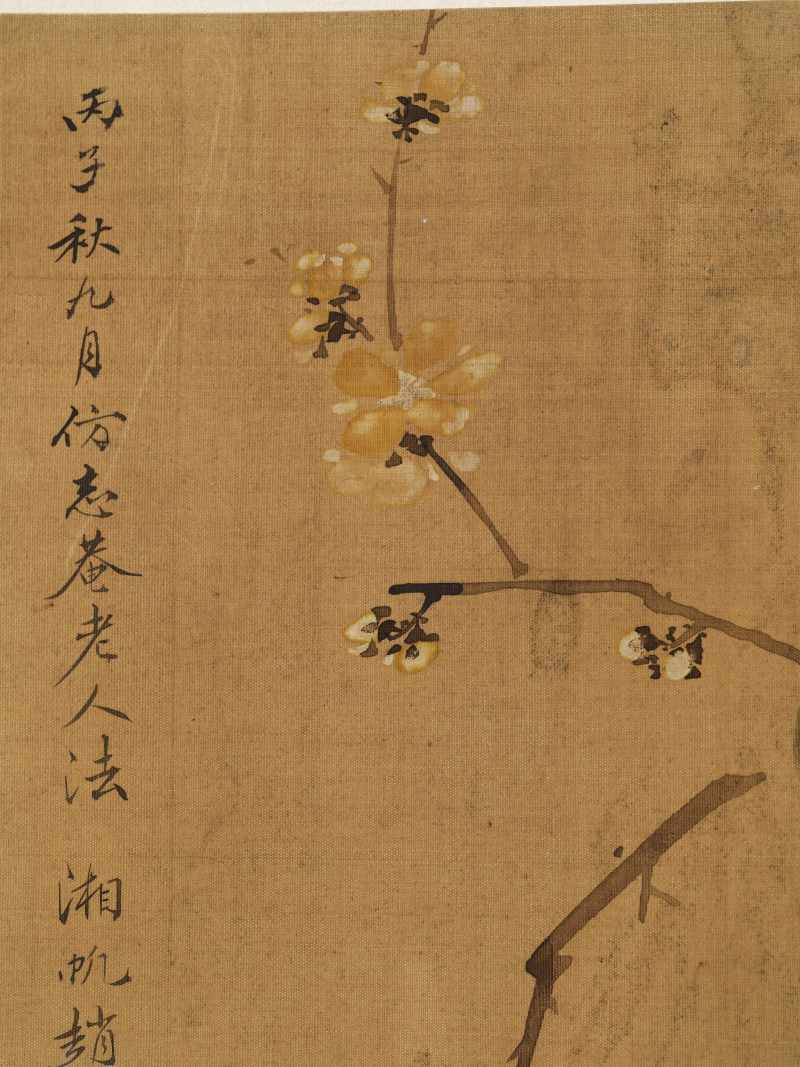 丙子秋九月仿志菴老人法 湘帆趙